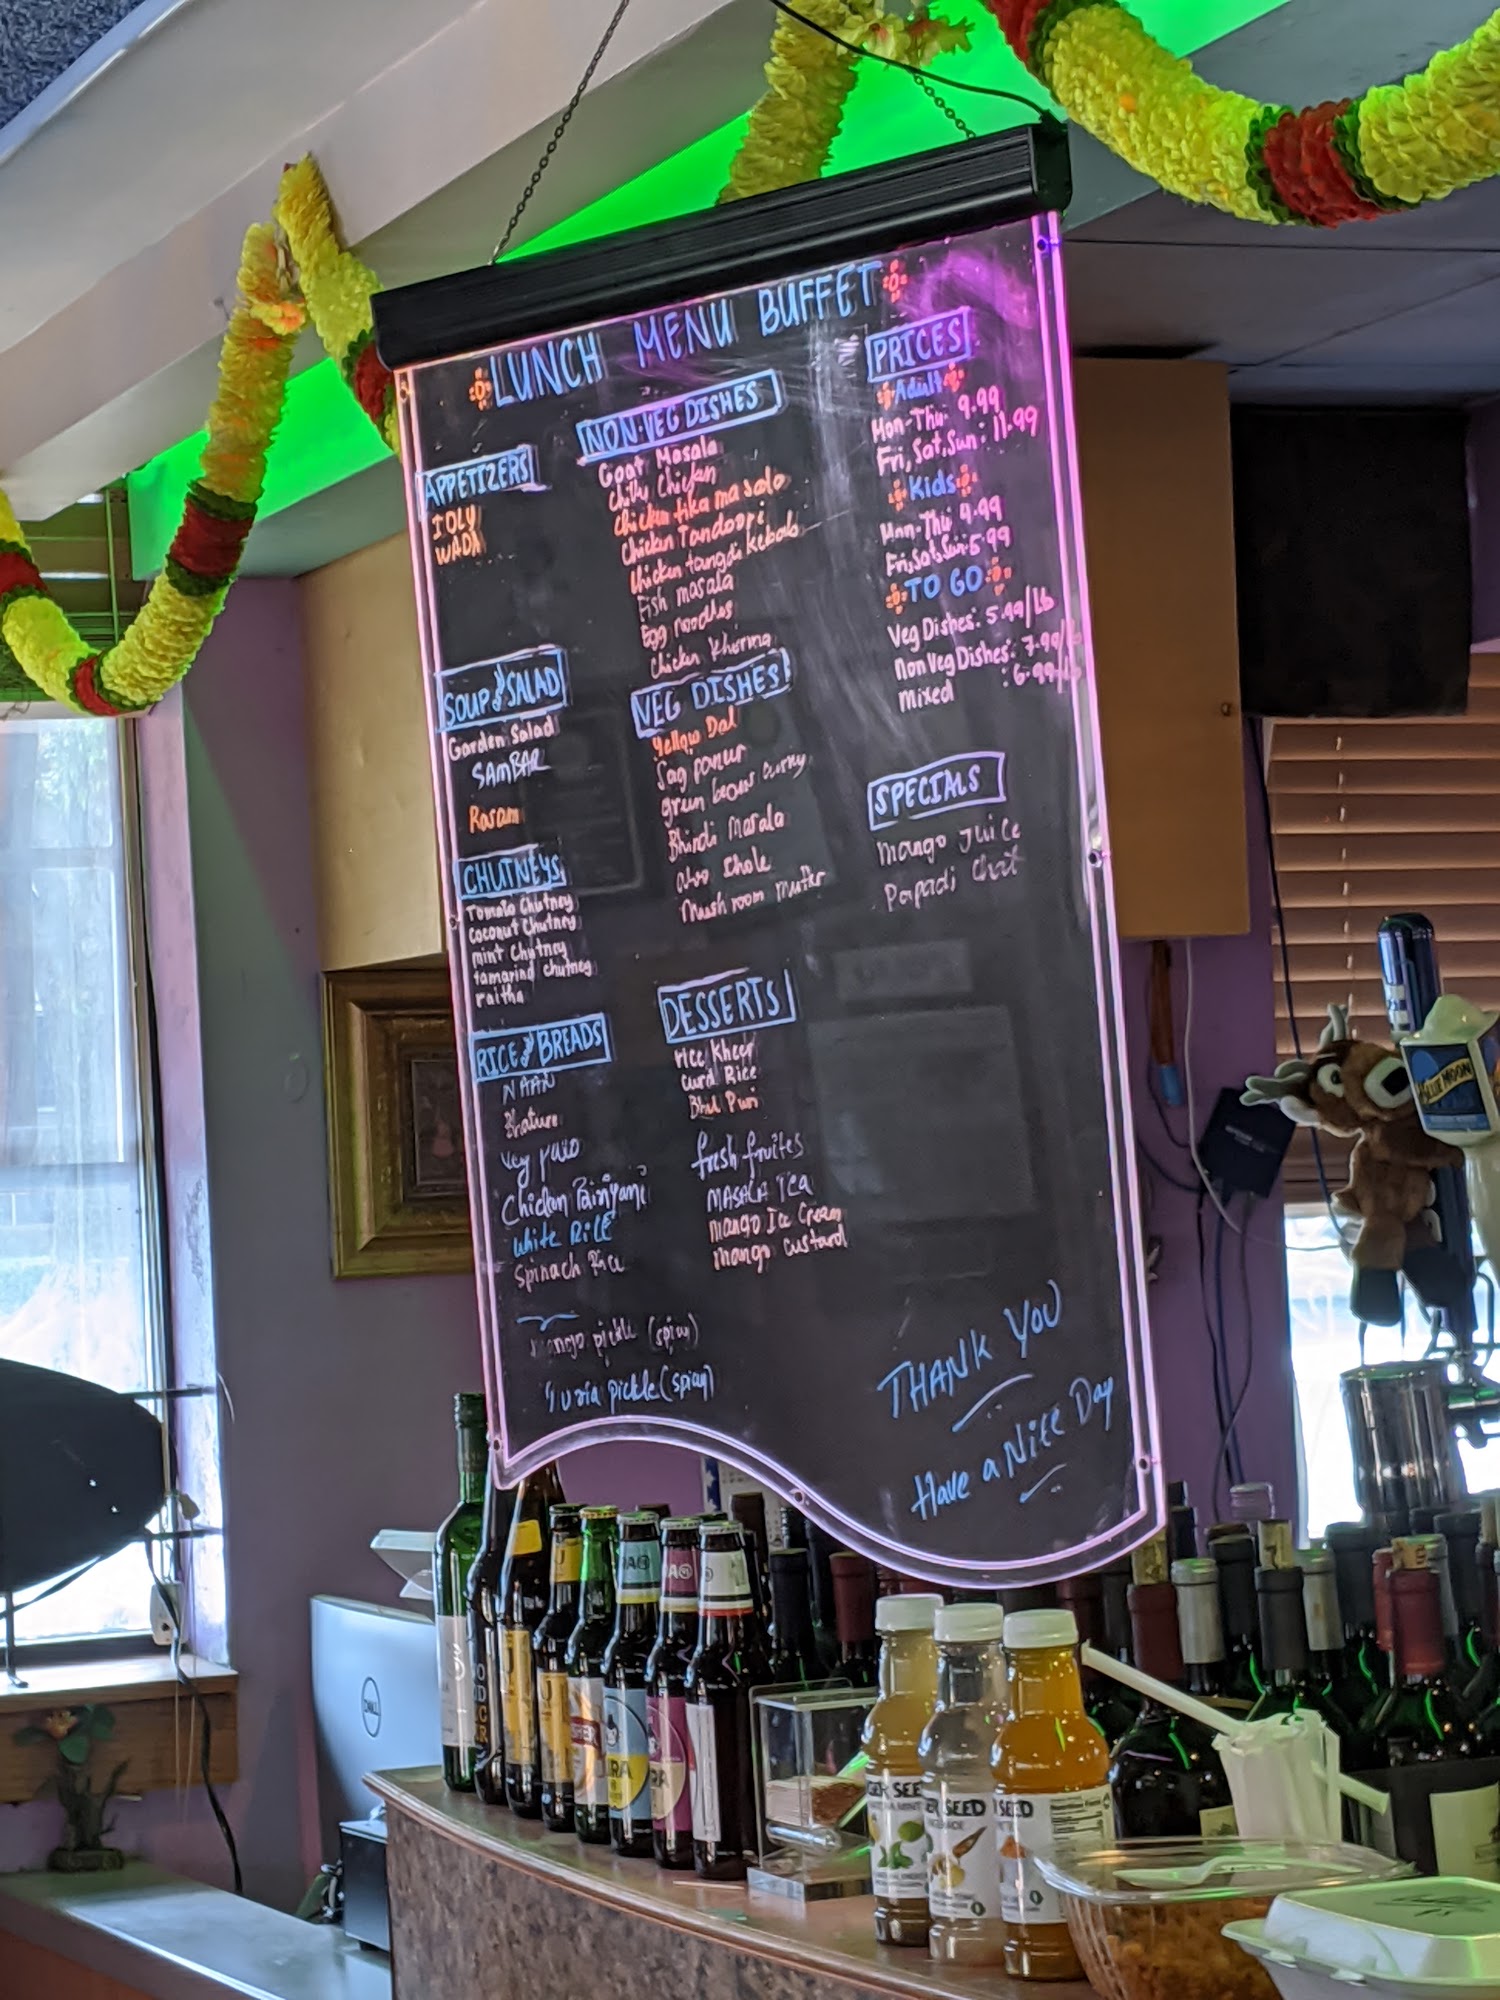 LUNCH MENU BUFFET
APPETIZERS
IDLY
WADA
SOUP & SALAD
Garden Salad
SAMBAR
Rasam
CHUTNEYS
Tomato Chutney
coconut Chutney
mint Chutney
tamarind chutney
raitha
RICE & BREADS
NAAN
Bhature
Veg
Chicken Biriyani
White RICE
Spinach Rice
mango pickle (spicy)
pickle (spicy)
NON-VEG DISHES
Goat Masala
Chilli Chicken
Chicken tika masala
Chicken Tandoori
Chicken tangdi Kebab
Fish masala
Egg noodles
Chicken Khorma
VEG DISHES
Yellow Dal
Sag paneer
green beans curry
Bhindi Masala
aloo chole
Mushroom mutter
DESSERTS
rice Kheer
curd Rice
Bhel Puri
fresh fruites
MASALA Tea
Mango Ice Cream
mango custard
PRICES
Adult
Mon-Thu 9.99
Fri, Sat, Sun: 11.99
Kids
Mon-Thu 4.99
Fri, Sat, Sun 5.99
TO GO
Veg Dishes: 5.99/lb
Non Veg Dishes: 7.99/lb
Mixed : 6.99/lb
SPECIALS
Mango Juice
Papadi Chat
THANK YOU
Have a Nice Day
BLUE MOON
DELL
GER SEE
ER SEED
SEED